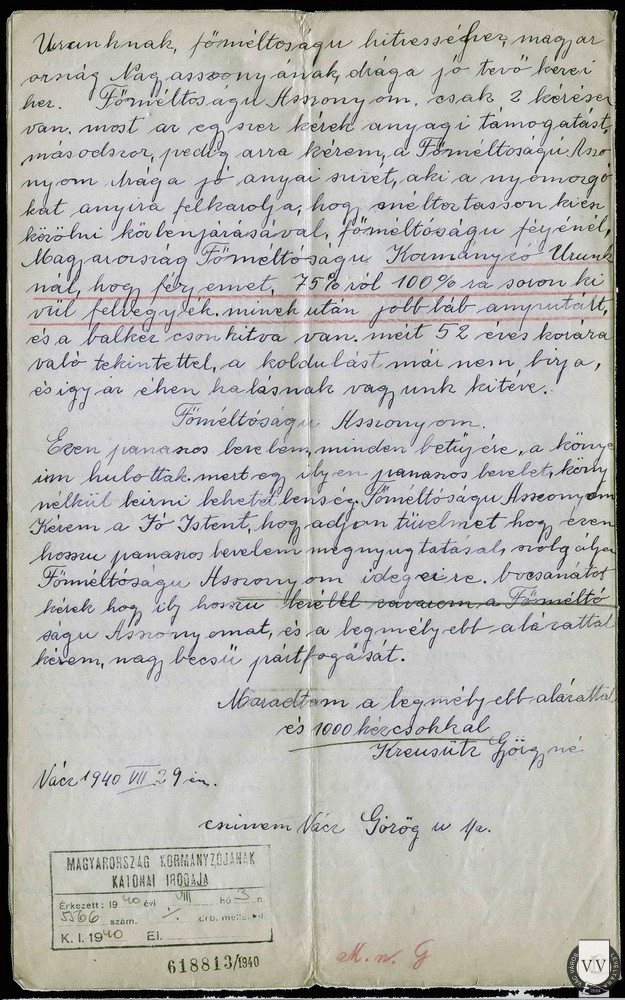 Urunknak, főméltoságu hitvesséhez, magyar
ország Nag asszonyának, drága jó tevő kezei
hez. Főméltoságu Asszonyom. csak 2 kérésem
van. most az eg szer kérek anyagi támogatást,
másodszor, pedig arra kérem, a Főméltoságu Assz
nyom drága jó anyai szivet, aki a nyomorgó
kat anyira felkarolja, hog méltoztasson kiesz
közölni közbenjárásával, főméltóságu férjénél,
Magyarország Főméltóságu Kormányzó Urunk
nál, hogy férjemet, 75%ról 100%ra soron ki
vül felvegyék. minek után jobb láb amputált,
és a balkez csonkitva van. mert 52 éves korára
való tekintettel, a koldulást mái nem, birja,
és igy az éhen halásnak vagyunk kiteve.
Főméltóságu Asszonyom.
Ezen panaszos levelem, minden betüjére, a könye
im hulottak. mert eg ilyen panaszos levelet, köny
nélkül leirni lehetetlenség. Főméltóságu Asszonyom
Kérem a Jó Istent, hog adjon türelmet hog ezen
hosszu panaszos levelem megnyugtatásal, szolgáljon
Főméltóságu Asszonyom idegeire. bocsánatot
kérek hog ily hosszu levéllel zavarom a Főméltó
ságu Asszonyomat, és a legmélyebb alázattal
kérem, nagy becsü pártfogását.
Maradtam a legmélyebb alázattal
és 1000 kézcsokkal
Kreusütz Görgyné
Vácz 1940 VII 29 én.
czimem Vácz Görög u 1/a.
MAGYARORSZÁG KORMÁNYZÓJÁNAK
KATONAI IRODÁJA
Érkezett: 1940 évi VIII hó 3 n
5566 szám. 1/. drb. mellékl
K. I. 1940 El.
618813/1940
M. n. G
VV